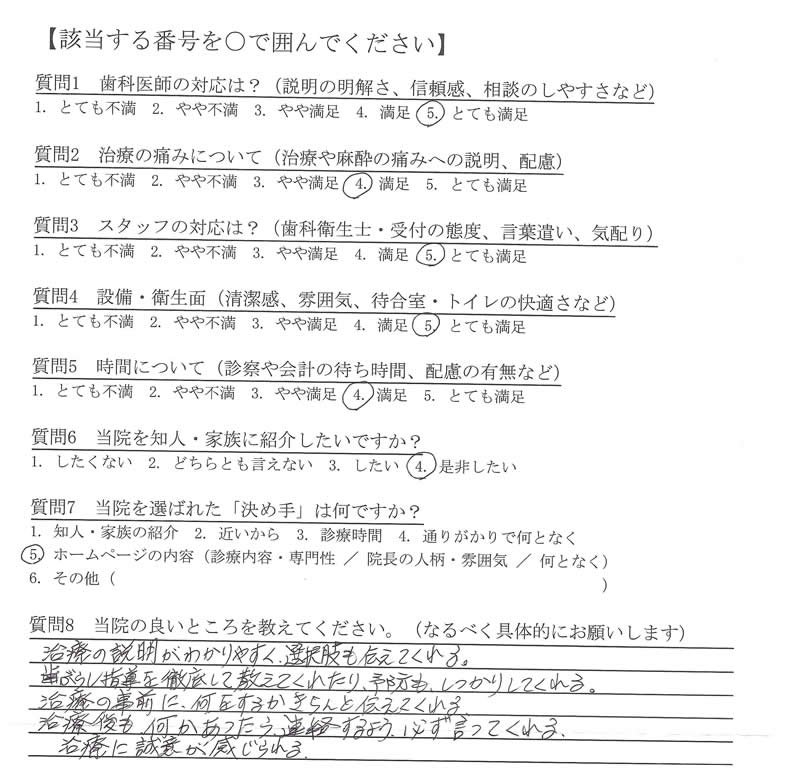 【該当する番号を○で囲んでください】
質問1　歯科医師の対応は？（説明の明解さ、信頼感、相談のしやすさなど）
1. とても不満　2. やや不満　3. やや満足　4. 満足　5. とても満足
質問2　治療の痛みについて（治療や麻酔の痛みへの説明、配慮）
1. とても不満　2. やや不満　3. やや満足　4. 満足　5. とても満足
質問3　スタッフの対応は？（歯科衛生士・受付の態度、言葉遣い、気配り）
1. とても不満　2. やや不満　3. やや満足　4. 満足　5. とても満足
質問4　設備・衛生面（清潔感、雰囲気、待合室・トイレの快適さなど）
1. とても不満　2. やや不満　3. やや満足　4. 満足　5. とても満足
質問5　時間について（診察や会計の待ち時間、配慮の有無など）
1. とても不満　2. やや不満　3. やや満足　4. 満足　5. とても満足
質問6　当院を知人・家族に紹介したいですか？
1. したくない　2. どちらとも言えない　3. したい　4. 是非したい
質問7　当院を選ばれた「決め手」は何ですか？
1. 知人・家族の紹介　2. 近いから　3. 診療時間　4. 通りがかりで何となく
5. ホームページの内容（診療内容・専門性 ／ 院長の人柄・雰囲気 ／ 何となく）
6. その他（　　　　　　　　）
質問8　当院の良いところを教えてください。（なるべく具体的にお願いします）
治療の説明がわかりやすく、選択肢も伝えてくれる。
歯ぶらし指導を徹底して教えてくれたり、予防も、しっかりしてくれる。
治療の事前に、何をするかきちんと伝えてくれる
治療後も、何かあったら、連絡するよう、必ず言ってくれる。
治療に誠意が感じられる。